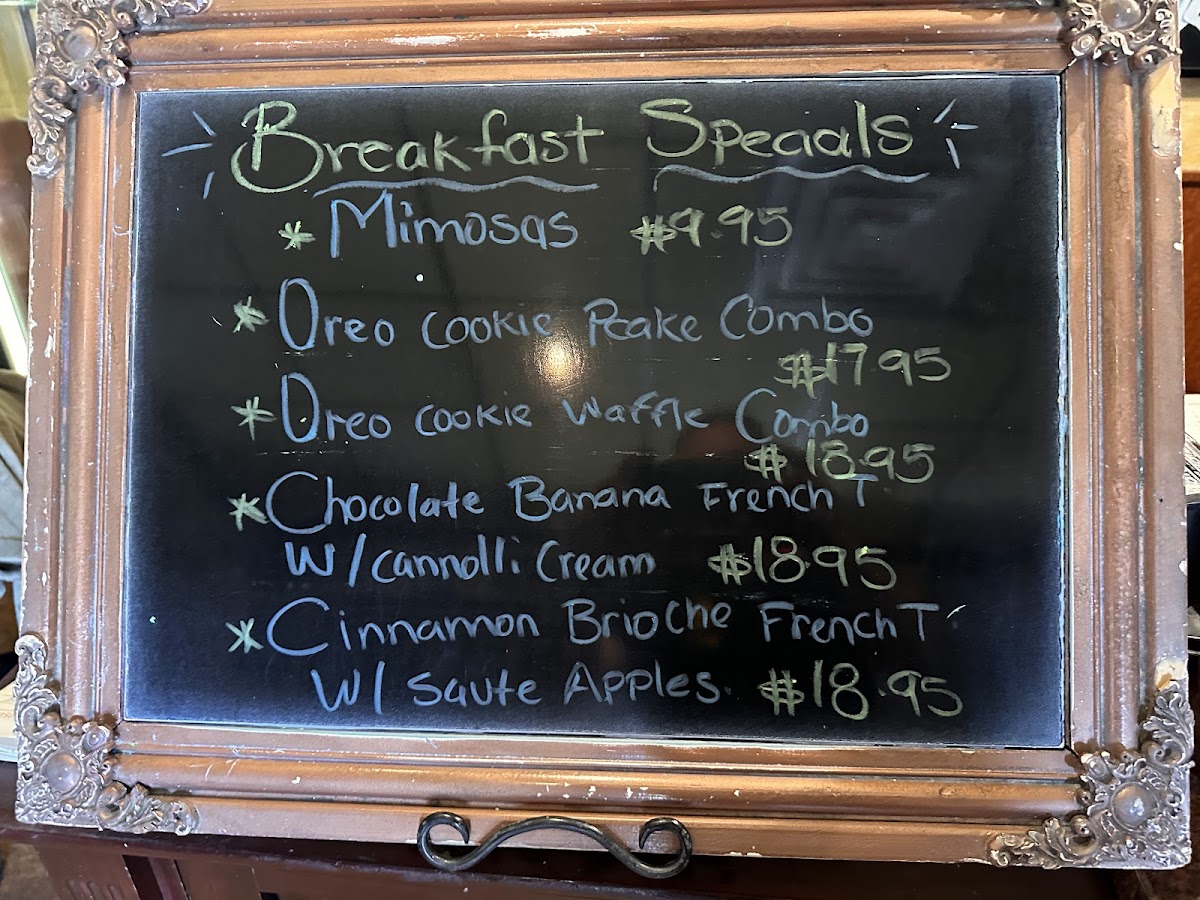 Breakfast Specials
* Mimosas $9.95
* Oreo cookie Pcake Combo
$17.95
* Oreo cookie Waffle Combo
$18.95
* Chocolate Banana French T
W/cannolli Cream $18.95
* Cinnamon Brioche French T
W/ saute Apples $18.95